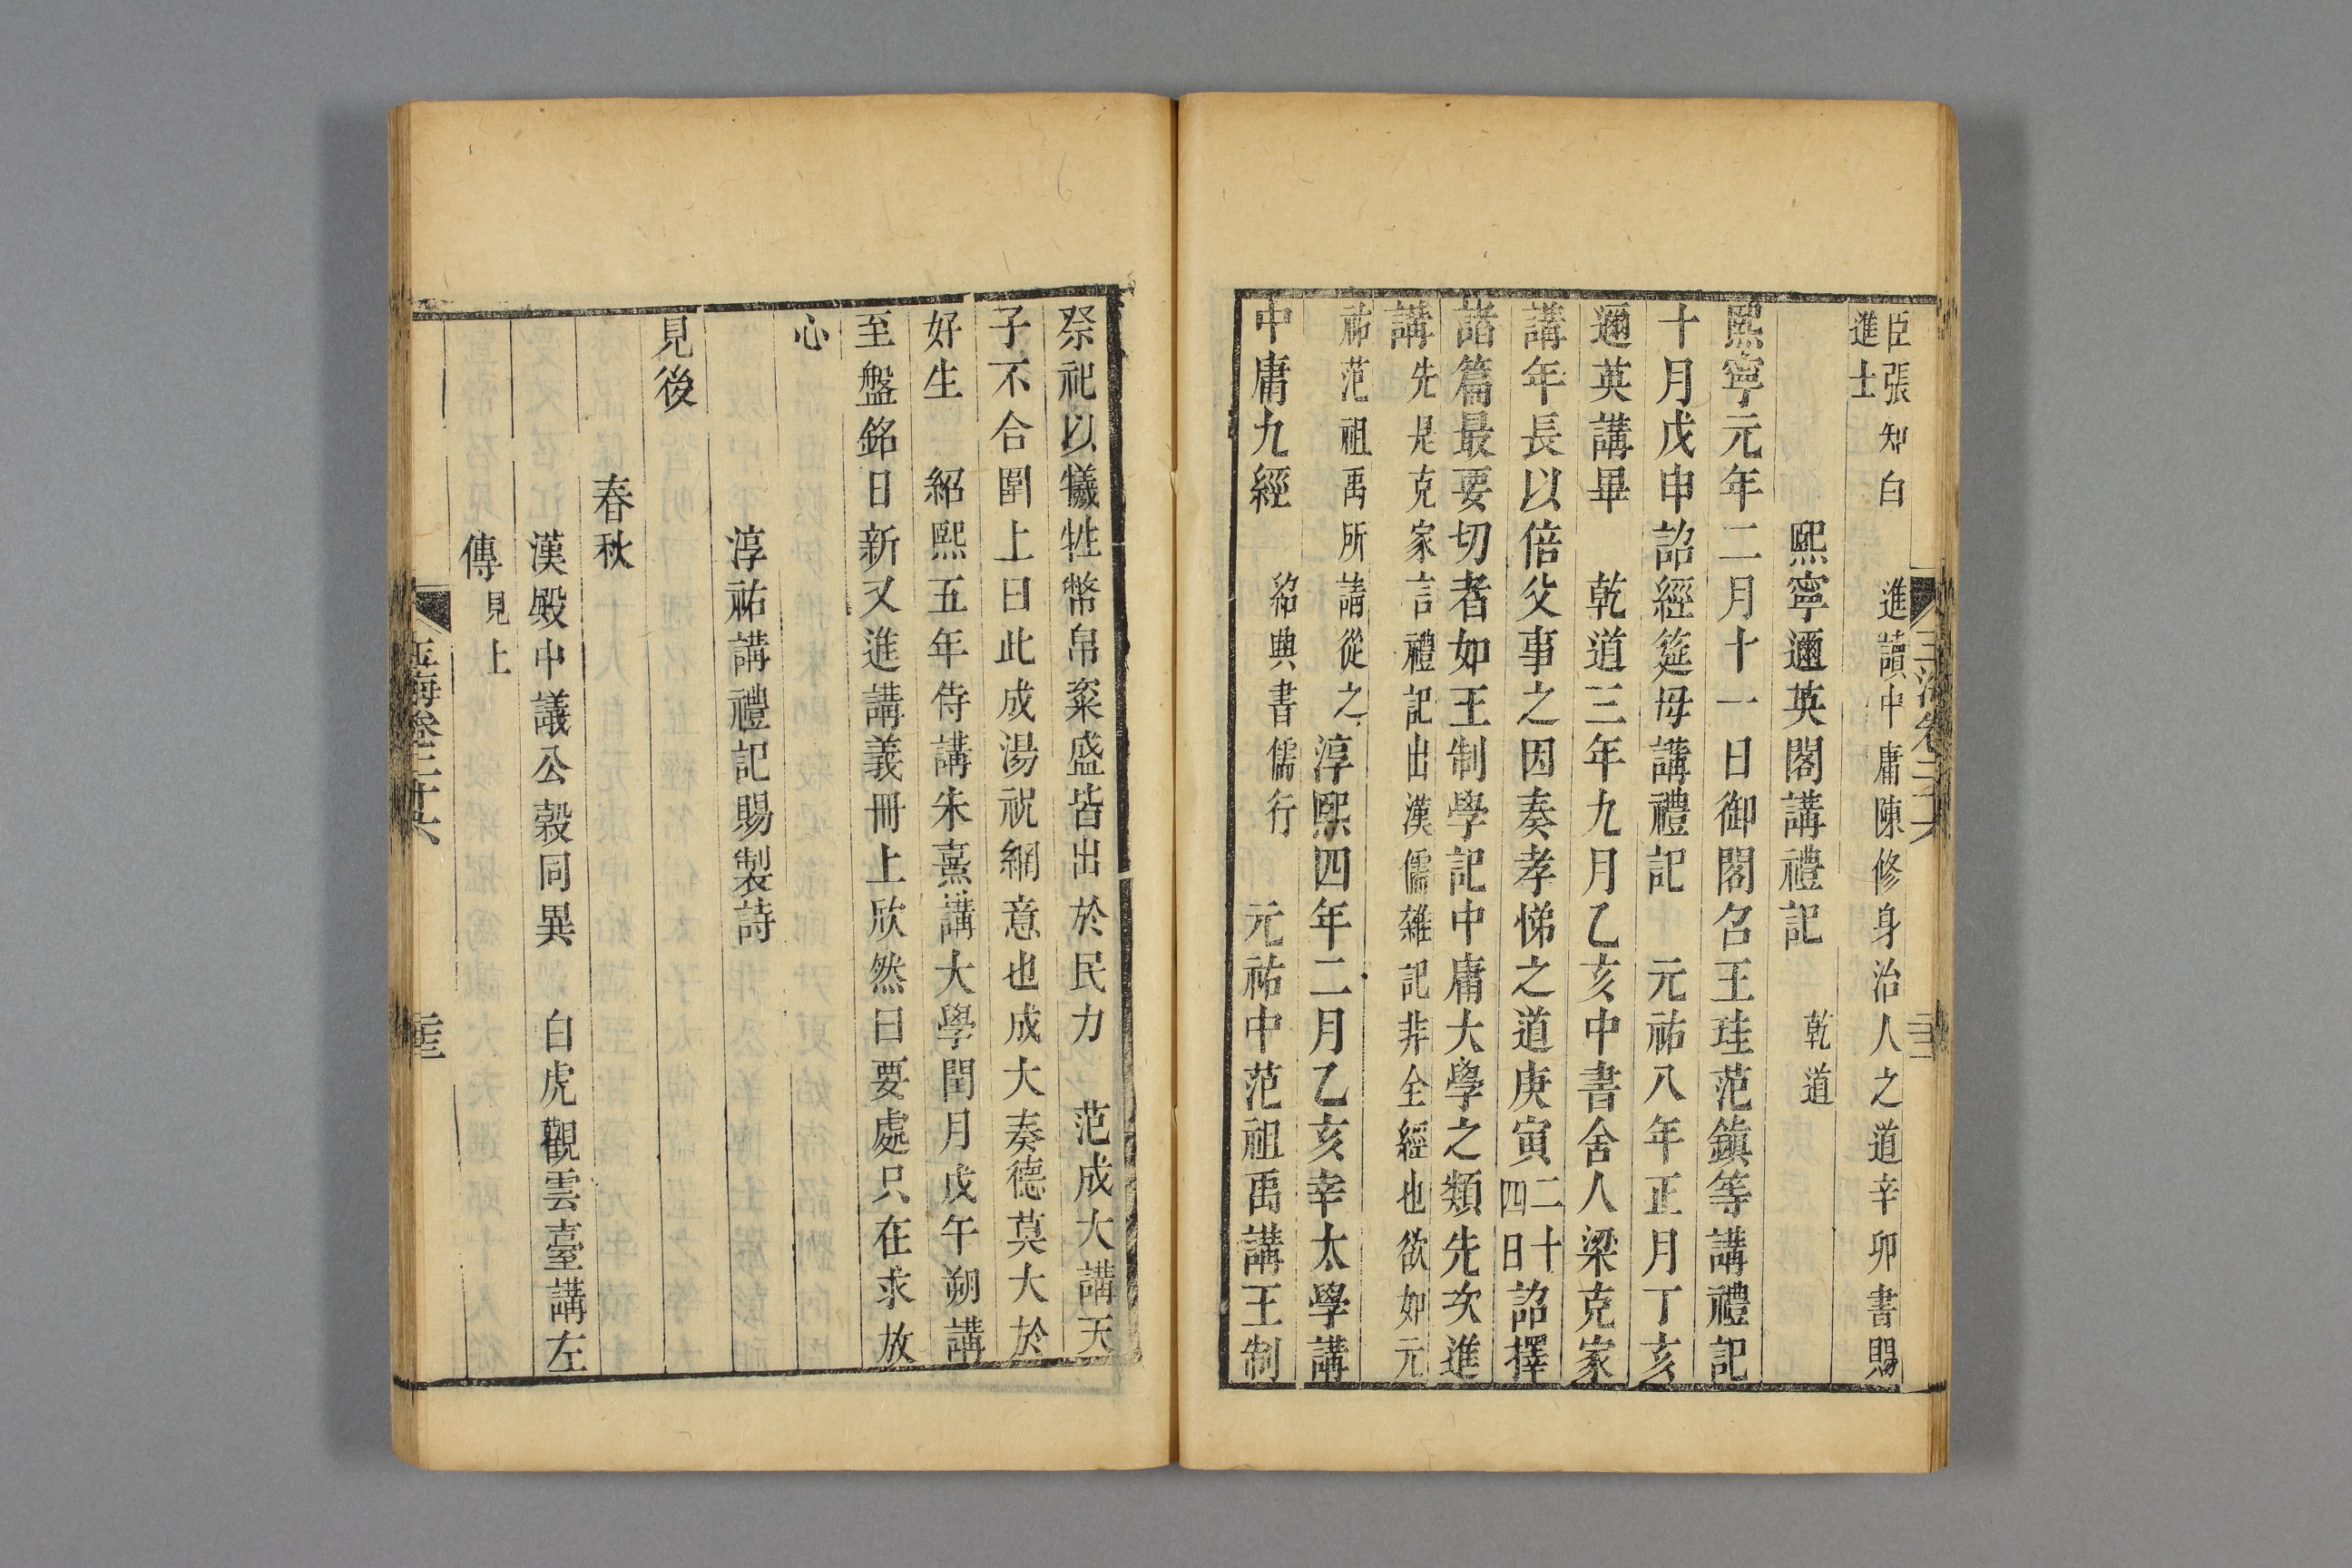 臣張知白 進讀中庸陳修身治人之道辛卯書賜
進士
熙寧邇英閣講禮記 乾道
熙寧元年二月十一日御閣召王珪范鎮等講禮記
十月戊申詔經筵毋講禮記 元祐八年正月丁亥
邇英講畢 乾道三年九月乙亥中書舍人梁克家
講年長以倍父事之因奏孝悌之道庚寅二十四日詔擇
諸篇最要切者如王制學記中庸大學之類先次進
講先是克家言禮記出漢儒雜記非全經也欲如元
祐范祖禹所請從之 淳熙四年二月乙亥幸太學講
中庸九經 紹興書儒行 元祐中范祖禹講王制
祭祀以犧牲幣帛粢盛皆出於民力 范成大講天
子不合圍上曰此成湯祝網意也成大奏德莫大於
好生 紹熙五年侍講朱熹講大學閏月戊午朔講
至盤銘日新又進講義冊上欣然曰要處只在求放
心
淳祐講禮記賜製詩
見後
春秋
漢殿中議公穀同異 白虎觀雲臺講左
傳見上
玉海卷二十六